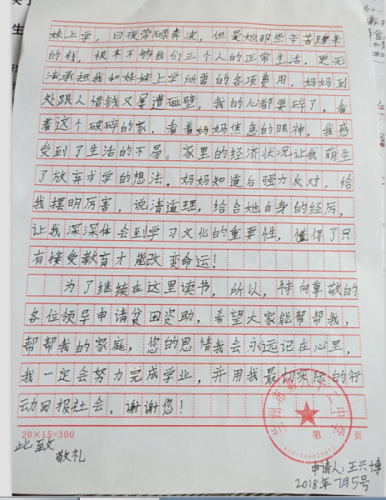 妹上学，日夜劳碌奔波，但是她那些辛苦赚来
的钱，根本不够我们三个人的正常生活，更无
法承担我和妹妹上学所需的各项费用，妈妈到
处跟人借钱又屡遭碰壁，我的心都要碎了，看
着这个破碎的家，看着妈妈焦急的眼神，我感
受到了生活的不易。家里的经济状况让我萌生
了放弃求学的想法。妈妈知道后强力反对，给
我摆明厉害，说清道理，结合她自身的经历，
让我深深体会到学习文化的重要性，懂得了只
有接受教育才能改变命运！
为了继续在这里读书，所以，特向尊敬的
各位领导申请贫困资助，希望大家能帮帮我，
帮帮我的家庭，您的恩情我会永远记在心里，
我一定会努力完成学业，并用我最切实际的行
动回报社会，谢谢您！
20×15=300
第 页
此致
敬礼
申请人：王兴博
2018年7月5号